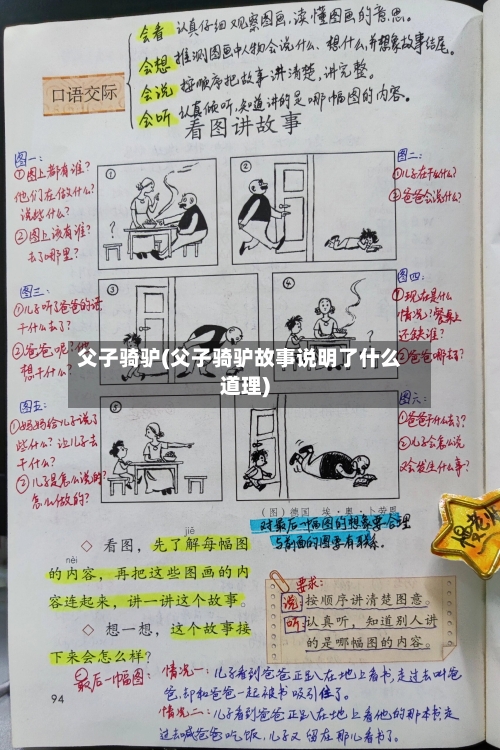 会看 认真仔细观察图画,读懂图画的意思。
会想 推测图画中人物会说什么、想什么,并想象故事结尾。
口语交际
会说 按顺序把故事讲清楚,讲完整。
会听 认真倾听,知道讲的是哪幅图的内容。
看图讲故事
图一:
①图上都有谁?
他们在做什么?
说些什么?
②图上该有谁?
去了哪里?
①
?
②
图二:
①儿子在干什么?
②爸爸会说什么?
图三:
①儿子听了爸爸的话
干什么去了?
②爸爸呢?他
想干什么?
③
④
?
图四:
①现在是什么
情况?餐桌上
还缺谁?
②爸爸哪去了?
父子骑驴(父子骑驴故事说明了什么
道理)
图五:
①妈妈给儿子说了
些什么?让儿子去
干什么?
②儿子是怎么说的?
怎么做的?
⑤
图六:
①爸爸干什么去了?
②儿子会怎么说
又会发生什么事?
(图)德国 埃·奥·卜劳恩
对最后一幅图的想象要合理
与前面的图要有联系。
◇ 看图,先了解每幅图
jiě
nèi
的内容,再把这些图画的内
容连起来,讲一讲这个故事。
◇ 想一想,这个故事接
下来会怎么样?
要求:
说:按顺序讲清楚图意。
听:认真听,知道别人讲
的是哪幅图的内容。
最后一幅图:
情况一:儿子看到爸爸正趴在地上看书,走过去叫爸
爸,却和爸爸一起被书吸引住了。
情况二:儿子看到爸爸正趴在地上看他的那本书,走
过去喊爸爸吃饭,儿子又留在那儿看书了。
94